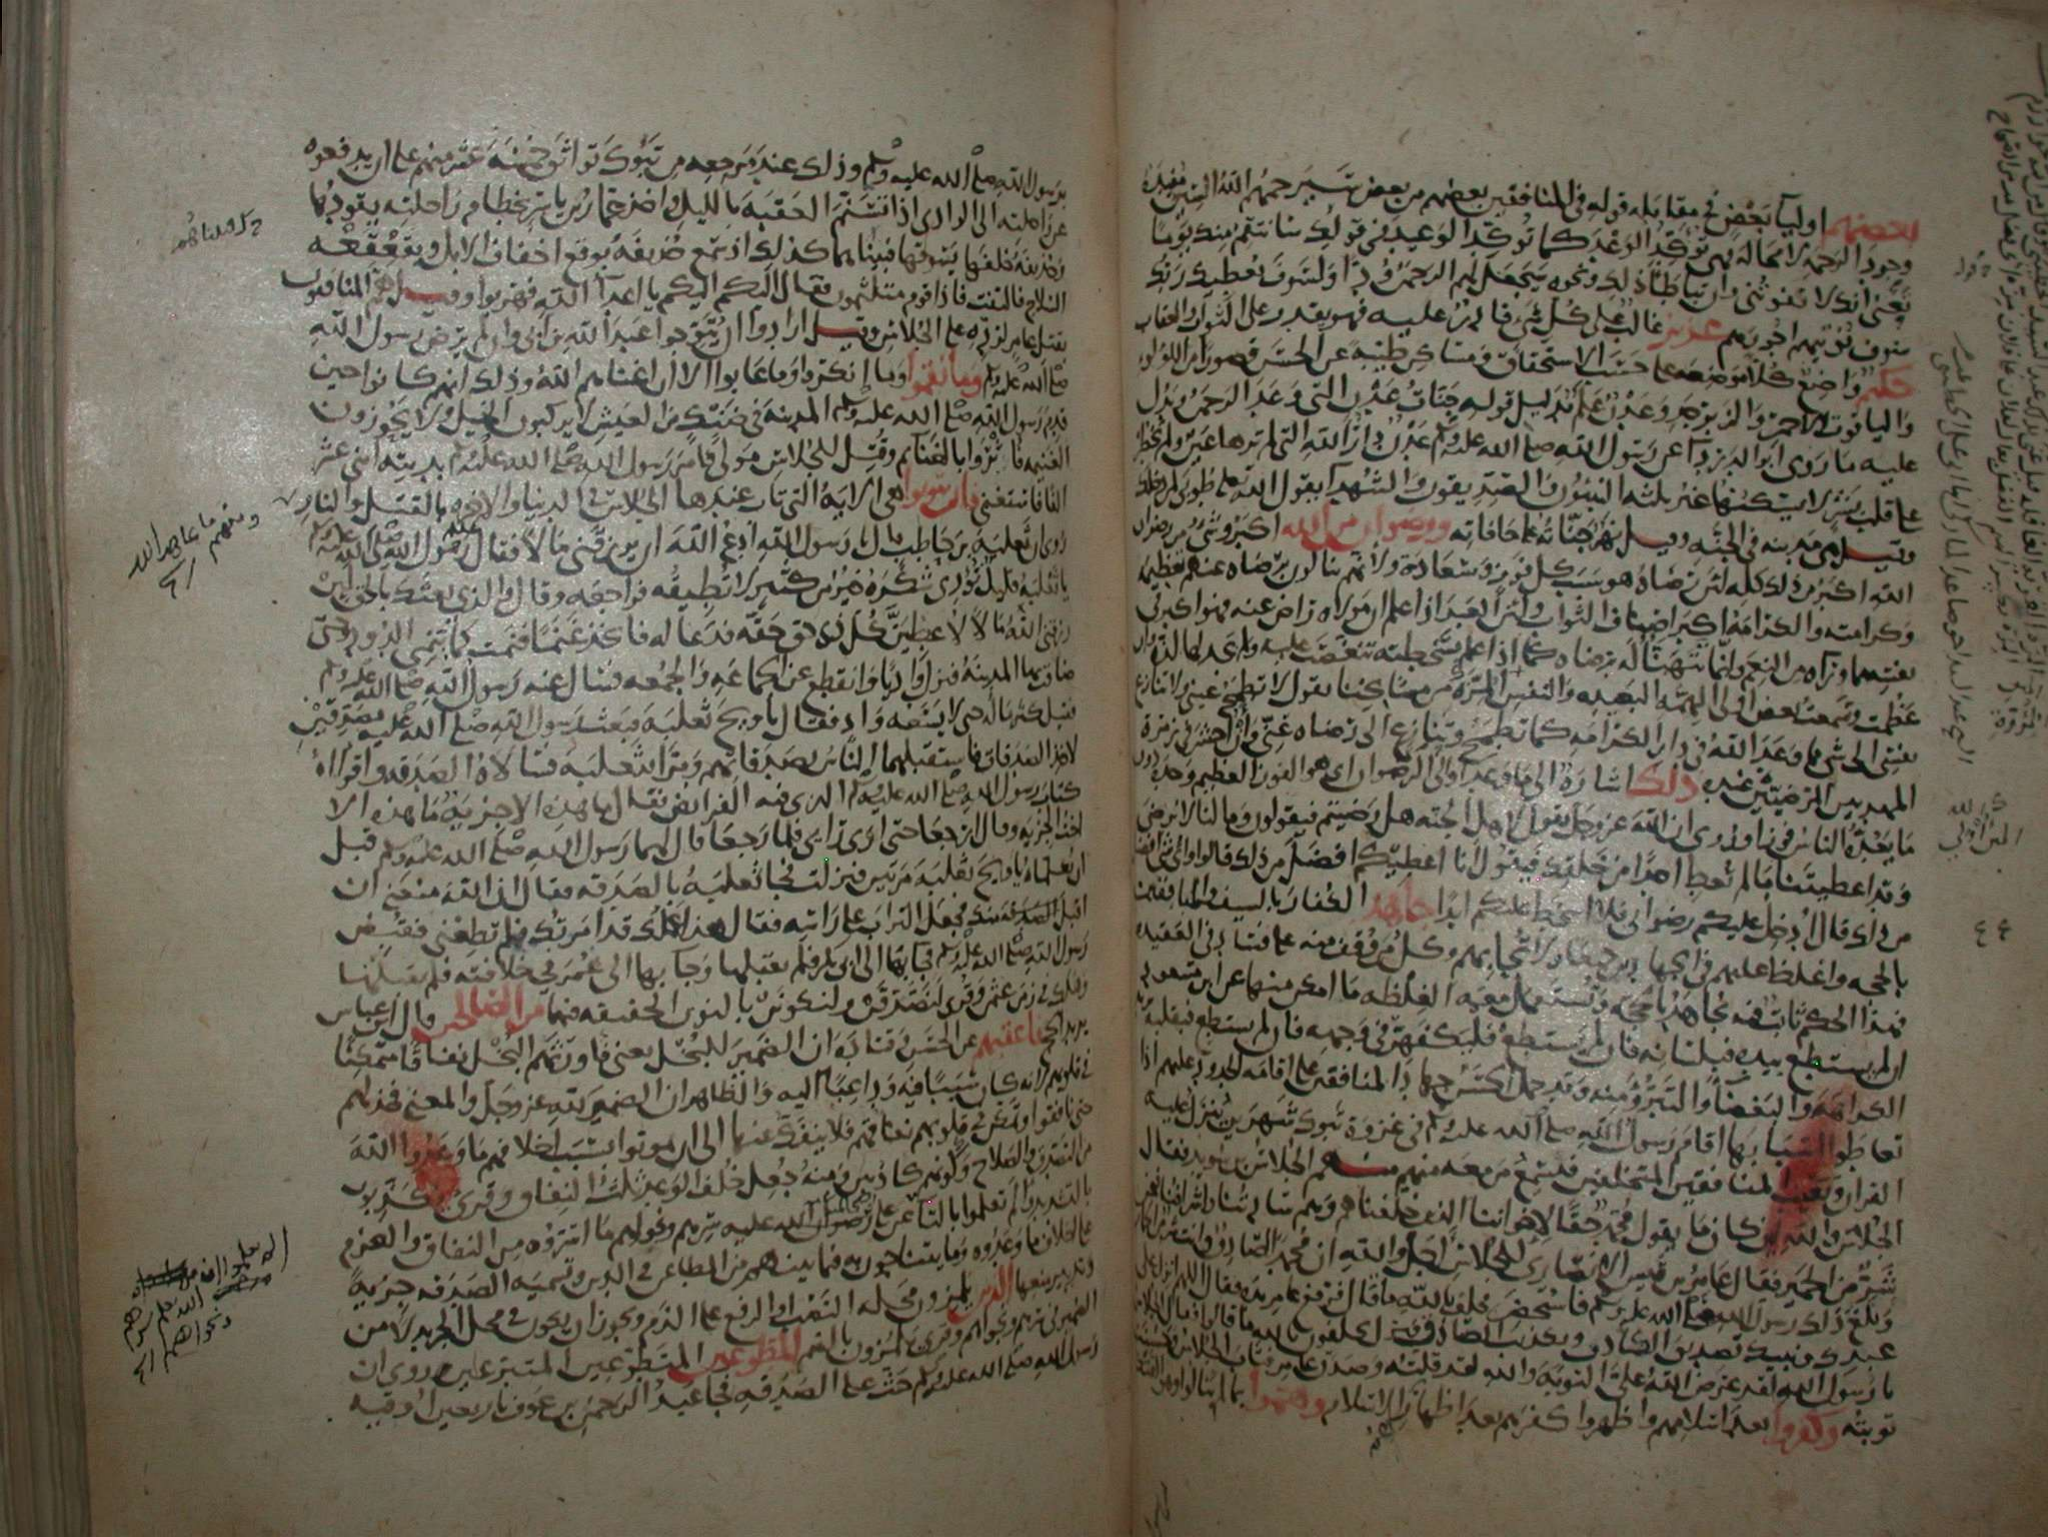 بعضهم اولياء بعض في مقابلة قوله في المنافقين بعضهم من بعض سيرحمهم الله السين مفيدة
وجود الرحمة لا محالة فهي تؤكد الوعد كما تؤكد الوعيد في قولك سانتقم منك يوما
تعني انك لا تفوتني وان تباطأ ذلك ونحوه سيجعل لهم الرحمن ودا ولسوف يعطيك ربك
سوف نؤتيهم اجورهم عزيز غالب على كل شيء قادر عليه فهو يقدر على الثواب والعقاب
حكيم واضع كلا موضعه على حسب الاستحقاق ومساكن طيبة عن الحسن قصورا من اللؤلؤ
والياقوت الاحمر والزبرجد وعدن علم بدليل قوله جنات عدن التي وعد الرحمن ويدل
عليه ما روى ابو الدرداء عن رسول الله صلى الله عليه وسلم عدن دار الله التي لم ترها عين ولم تخطر
على قلب بشر لا يسكنها غير ثلثة النبيون والصديقون والشهداء يقول الله طوبى لمن دخلك
وقيل هي مدينة في الجنة وقيل نهر جناته على حافاته ورضوان من الله اكبر وشيء من رضوان
الله اكبر من ذلك كله لان رضاه هو سبب كل فوز وسعادة ولانهم ينالون برضاه عنهم تعظيمه
وكرامته والكرامة اكبر اصناف الثواب ولان العبد اذا علم ان مولاه راض عنه فهو اكبر في
نفسه مما وراءه من النعم وانما تتهنا له برضاه كما اذا علم بسخطته تنغصت عليه ولم يجد لها لذة وان
عظمت وسمعت بعض اولى الهمة البعيدة والنفس المرة من مشايخنا يقول لا تطمح عيني ولا تنازع
نفسي الى شيء مما وعد الله في دار الكرامة كما تطمح وتنازع الى رضاه عني وان احشر في زمرة
المهديين المرضيين عنده ذلك اشارة الى ما وعد او الى الرضوان اي هو الفوز العظيم وحده دون
ما يعده الناس فوزا وروى ان الله عز وجل يقول لاهل الجنة هل رضيتم فيقولون وما لنا لا نرضى
وقد اعطيتنا ما لم تعط احدا من خلقك فيقول انا اعطيكم افضل من ذلك قالوا واي شيء افضل
من ذلك قال ادخل عليكم رضواني فلا اسخط عليكم ابدا جاهد الكفار بالسيف والمنافقين
بالحجة واغلظ عليهم في الجهادين جميعا ولا تحابهم وكل من وقف منه على فساد في العقيدة
فهذا الحكم ثابت فيه يجاهد بالحجة وتستعمل معه الغلظة ما امكن منها عن ابن مسعود
ان لم يستطع بيده فبلسانه فان لم يستطع فليكفهر في وجهه فان لم يستطع فبقلبه
الكراهة والبغضاء والتبرؤ منه وقد حمل الحسن جهاد المنافقين على اقامة الحدود عليهم اذا
تعاطوا اسبابها اقام رسول الله صلى الله عليه وسلم في غزوة تبوك شهرين ينزل عليه
القران ويعيب المنافقين المتخلفين فيسمع من معه منهم منهم الجلاس بن سويد فقال
الجلاس والله لئن كان ما يقول محمد حقا لاخواننا الذين خلفناهم وهم ساداتنا واشرافنا فنحن
شر من الحمير فقال عامر بن قيس الانصاري للجلاس اجل والله ان محمدا لصادق وانت شر من الحمار
وبلغ ذلك رسول الله صلى الله عليه وسلم فاستحضر فحلف بالله ما قال فرفع عامر يده فقال اللهم انزل على
عبدك ونبيك تصديق الصادق وتكذيب الكاذب فنزل يحلفون بالله ما قالوا فقال الجلاس
يا رسول الله لقد عرض الله علي التوبة والله لقد قلته وصدق عامر فتاب الجلاس وحسنت
توبته وكفروا بعد اسلامهم واظهروا كفرهم بعد اظهار الاسلام وهموا بما لم ينالوا وهو الفتك
برسول الله صلى الله عليه وسلم وذلك عند مرجعه من تبوك تواثق خمسة عشر منهم على ان يدفعوه
عن راحلته الى الوادي اذا تسنم العقبة بالليل واخذ عمار بن ياسر بخطام راحلته يقودها
وحذيفة خلفها يسوقها فبينا هما كذلك اذ سمع حذيفة بوقع اخفاف الابل وبقعقعة
السلاح فالتفت فاذا قوم متلثمون فقال اليكم اليكم يا اعداء الله فهربوا وقيل هم المنافقون
بقتل عامر لرده على الجلاس وقيل ارادوا ان يتوجوا عبد الله بن ابي وان لم يرض رسول الله
صلى الله عليه وسلم وما نقموا وما انكروا وما عابوا الا ان اغناهم الله وذلك انهم كانوا حين
قدم رسول الله صلى الله عليه وسلم المدينة في ضنك من العيش لا يركبون الخيل ولا يحوزون
الغنيمة فاثروا بالغنائم وقتل للجلاس مولى فامر رسول الله صلى الله عليه وسلم بديته اثني عشر
الفا فاستغنى فان يتوبوا هي الاية التي تاب عندها الجلاس في الدنيا والاخرة بالقتل والنار
روى ان ثعلبة بن حاطب قال يا رسول الله ادع الله ان يرزقني مالا فقال رسول الله صلى الله عليه وسلم
يا ثعلبة قليل تؤدي شكره خير من كثير لا تطيقه فراجعه وقال والذي بعثك بالحق لئن
رزقني الله مالا لاعطين كل ذي حق حقه فدعا له فاتخذ غنما فنمت كما ينمي الدود حتى
ضاقت بها المدينة فنزل واديا وانقطع عن الجماعة والجمعة فسال عنه رسول الله صلى الله عليه وسلم
فقيل كثر ماله حتى لا يسعه واد فقال يا ويح ثعلبة فبعث رسول الله صلى الله عليه مصدقين
لاخذ الصدقات فاستقبلهما الناس بصدقاتهم ومرا بثعلبة فسالاه الصدقة واقرآه
كتاب رسول الله صلى الله عليه وسلم الذي فيه الفرائض فقال ما هذه الا جزية ما هذه الا
اخت الجزية وقال ارجعا حتى ارى رايي فلما رجعا قال لهما رسول الله صلى الله عليه وسلم قبل
ان يكلماه يا ويح ثعلبة مرتين فنزلت فجاء ثعلبة بالصدقة فقال ان الله منعني ان
اقبل الصدقة منك فجعل التراب على راسه فقال هذا عملك قد امرتك فلم تطعني فقبض
رسول الله صلى الله عليه وسلم فجاء بها الى ابي بكر فلم يقبلها وجاء بها الى عمر في خلافته فلم يقبلها
وهلك في زمن عثمن وقرئ لنصدقن ولنكونن بالنون الخفيفة فيهما من الصالحين قال ابن عباس
يريد الحج فاعقبهم عن الحسن وقتادة ان الضمير للبخل يعني فاورثهم البخل نفاقا متمكنا
في قلوبهم لانه كان سببا فيه وداعيا اليه والظاهر ان الضمير لله عز وجل والمعنى فخذلهم
حتى نافقوا وتمكن في قلوبهم نفاقهم فلا ينفك عنها الى ان يموتوا بسبب اخلافهم ما وعدوا الله
من التصدق والصلاح وكونهم كاذبين ومنه جعل خلف الوعد ثلث النفاق وقرئ يكذبون
بالتشديد والم تعلموا بالتاء عن علي رضوان الله عليه سرهم ونجواهم ما اسروه من النفاق والعزم
على اخلاف ما وعدوه وما يتناجون به فيما بينهم من المطاعن في الدين وتسمية الصدقة جزية
وتدبير منعها الذين يلمزون محله النصب او الرفع على الذم ويجوز ان يكون في محل الجر بدلا من
الضمير في سرهم ونجواهم وقرئ يلمزون بالضم المطوعين المتطوعين المتبرعين روى ان
رسول الله صلى الله عليه وسلم حث على الصدقة فجاء عبد الرحمن بن عوف باربعين اوقية
ومنهم من عاهد الله